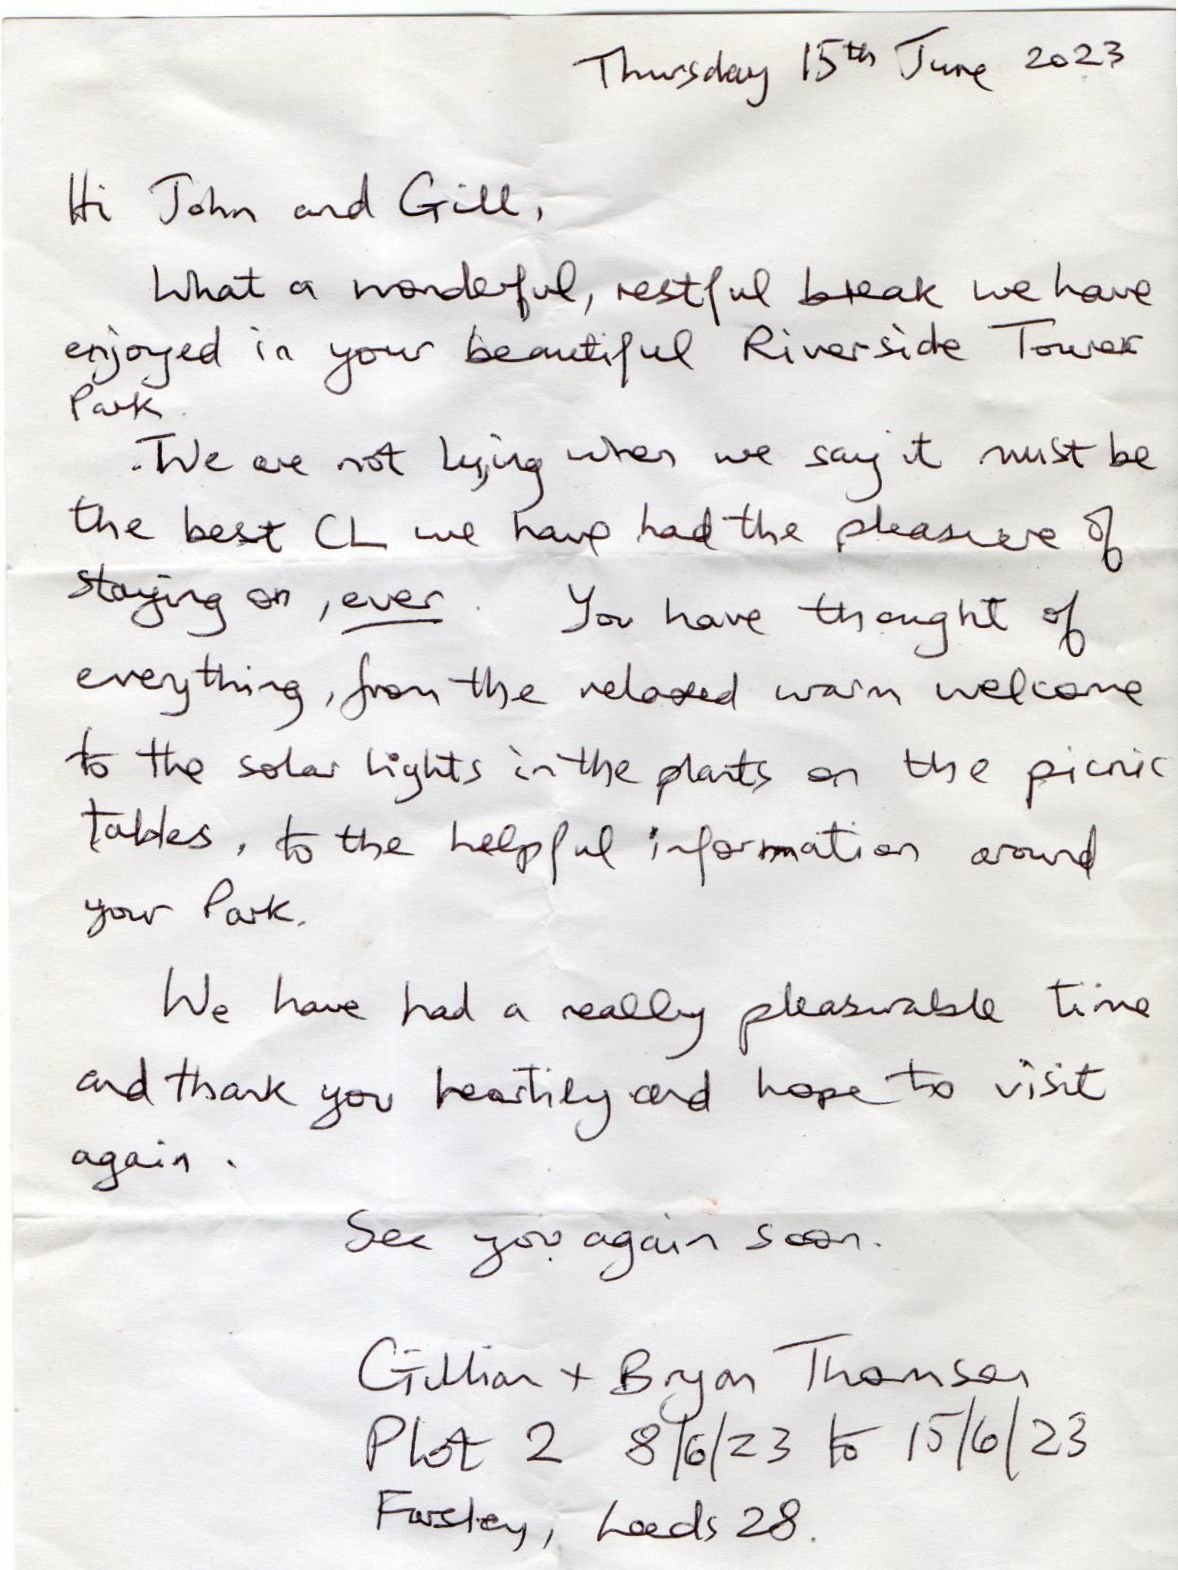 Thursday 15th June 2023
Hi John and Gill,
What a wonderful, restful break we have
enjoyed in your beautiful Riverside Tower
Park.
We are not lying when we say it must be
the best CL we have had the pleasure of
staying on, ever. You have thought of
everything, from the relaxed warm welcome
to the solar lights in the plants on the picnic
tables, to the helpful information around
your Park.
We have had a really pleasurable time
and thank you heartily and hope to visit
again.
See you again soon.
Gillian + Bryan Thomson
Plot 2 8/6/23 to 15/6/23
Farsley, Leeds 28.